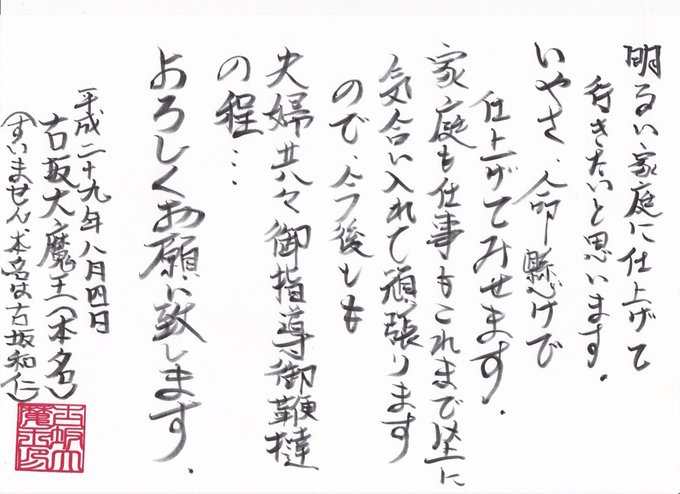 明るい家庭に仕上げて
行きたいと思います.
いやさ、命懸けで
仕上げてみせます.
家庭も仕事もこれまで以上に
気合い入れて頑張ります
ので、今後とも
夫婦共々御指導御鞭撻
の程…
よろしくお願い致します.
平成二十九年八月四日
古坂大魔王(本名)
(すいません、本名は古坂和仁)